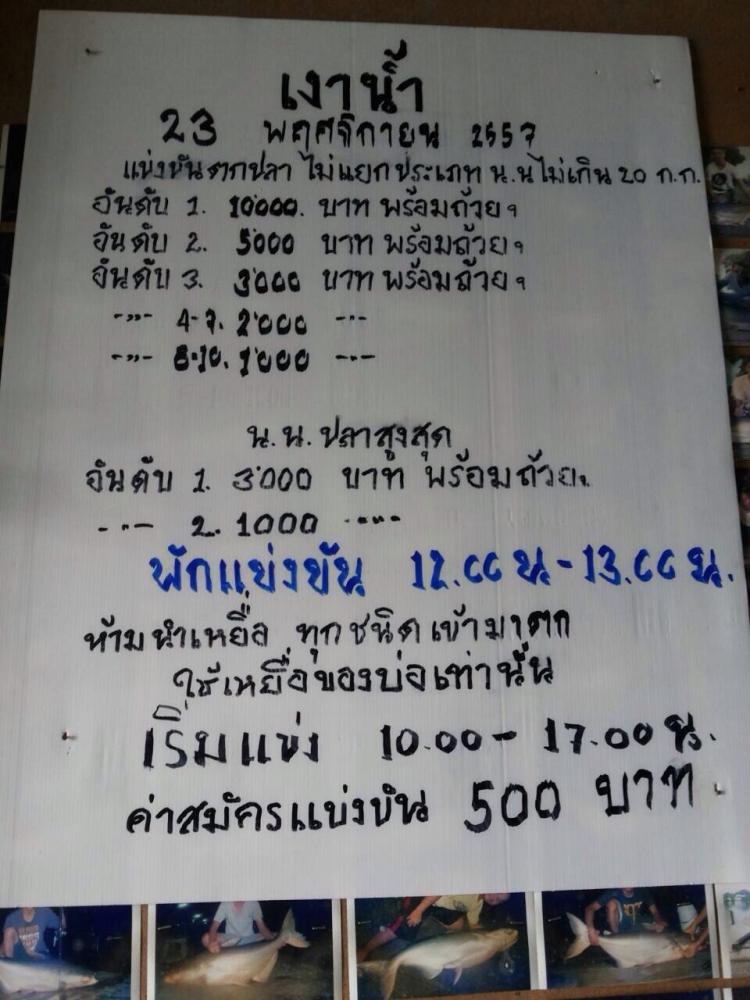 เงาน้ำ
23 พฤศจิกายน 2557
แข่งขันตกปลา ไม่แยกประเภท น.นไม่เกิน 20 ก.ก.
อันดับ 1. 10000. บาท พร้อมถ้วยฯ
อันดับ 2. 5000 บาท พร้อมถ้วยฯ
อันดับ 3. 3000 บาท พร้อมถ้วยฯ
-"- 4-7. 2000 -"-
-"- 8-10. 1000 -"-
น.น.ปลาสูงสุด
อันดับ 1. 3000 บาท พร้อมถ้วยฯ
-"- 2. 1000 -"-
พักแข่งขัน 12.00 น - 13.00 น.
ห้ามนำเหยื่อ ทุกชนิดเข้ามาตก
ใช้เหยื่อของบ่อเท่านั้น
เริ่มแข่ง 10.00 - 17.00 น.
ค่าสมัครแข่งขัน 500 บาท